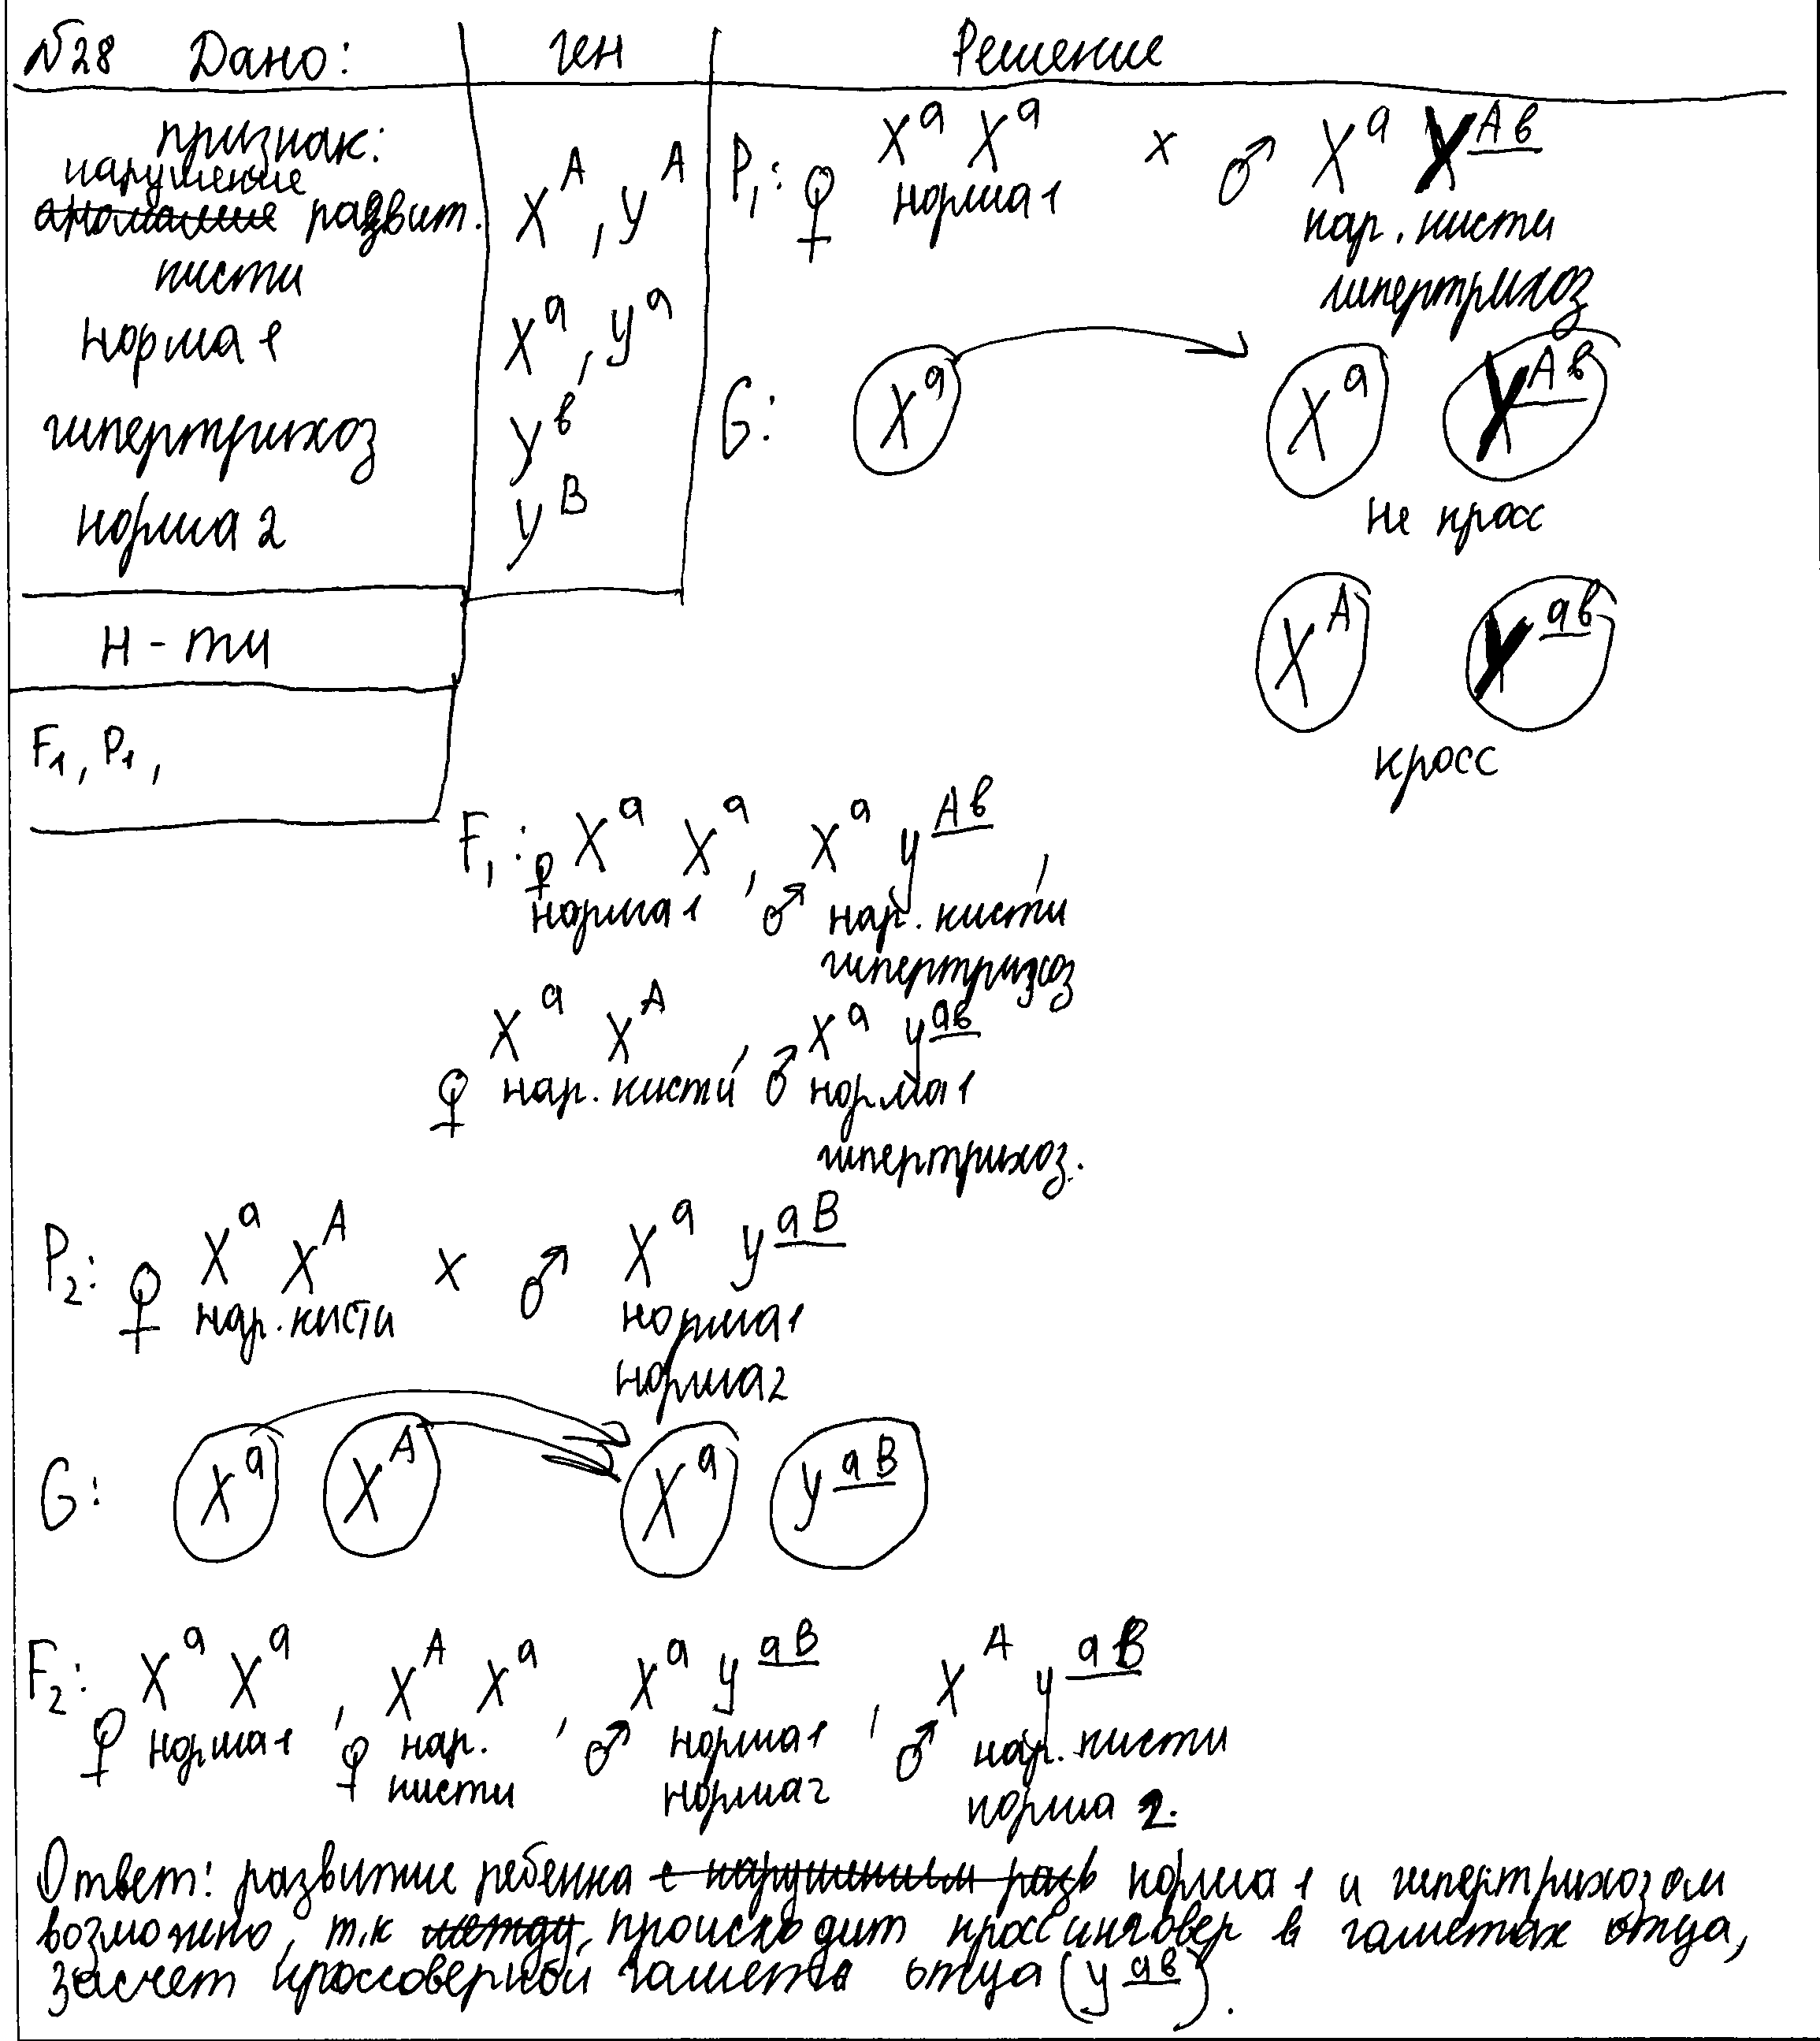 №28 Дано: ген Решение
признак:
нарушение
аномалия развит. X^A, y^A
кисти
норма 1 X^a, y^a
гипертрихоз y^в
норма 2 y^B
Н-ти
F1, P1,
P1: ♀ X^a X^a x ♂ X^a Y^Aв
норма 1 нар. кисти
гипертрихоз
G: X^a X^a Y^Aв
не кросс
X^A Y^aв
кросс
F1: ♀ X^a X^a, ♂ X^a y^Aв,
норма 1 нар. кисти
гипертрихоз
♀ X^a X^A, ♂ X^a y^aв
нар. кисти норма 1
гипертрихоз.
P2: ♀ X^a X^A x ♂ X^a y^aB
нар. кисти норма 1
норма 2
G: X^a X^A X^a y^aB
F2: ♀ X^a X^a, ♀ X^A X^a, ♂ X^a y^aB, ♂ X^A y^aB
норма 1 нар. норма 1 нар. кисти
кисти норма 2 норма 2.
Ответ: развитие ребенка с нарушением разв норма 1 и гипертрихозом
возможно, т.к между, происходит кроссинговер в гаметах отца,
засчет кроссоверной гаметы отца (y^aв).